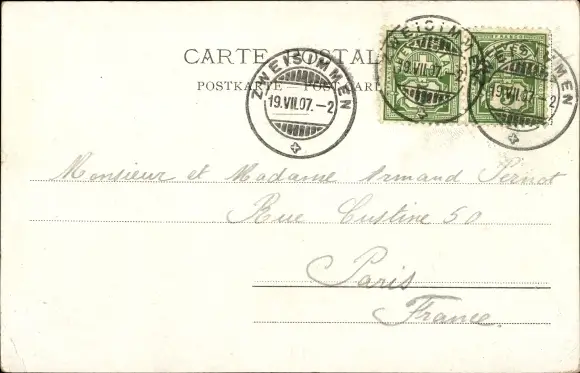 CARTE POSTALE
POSTKARTE
ZWEISIMMEN
19.VII.07.-2
ZWEISIMMEN
19.VII.07.-2
ZWEISIMMEN
19.VII.07.
FRANCO
Monsieur et Madame Armand Pernot
Rue Custine 50
Paris
France.